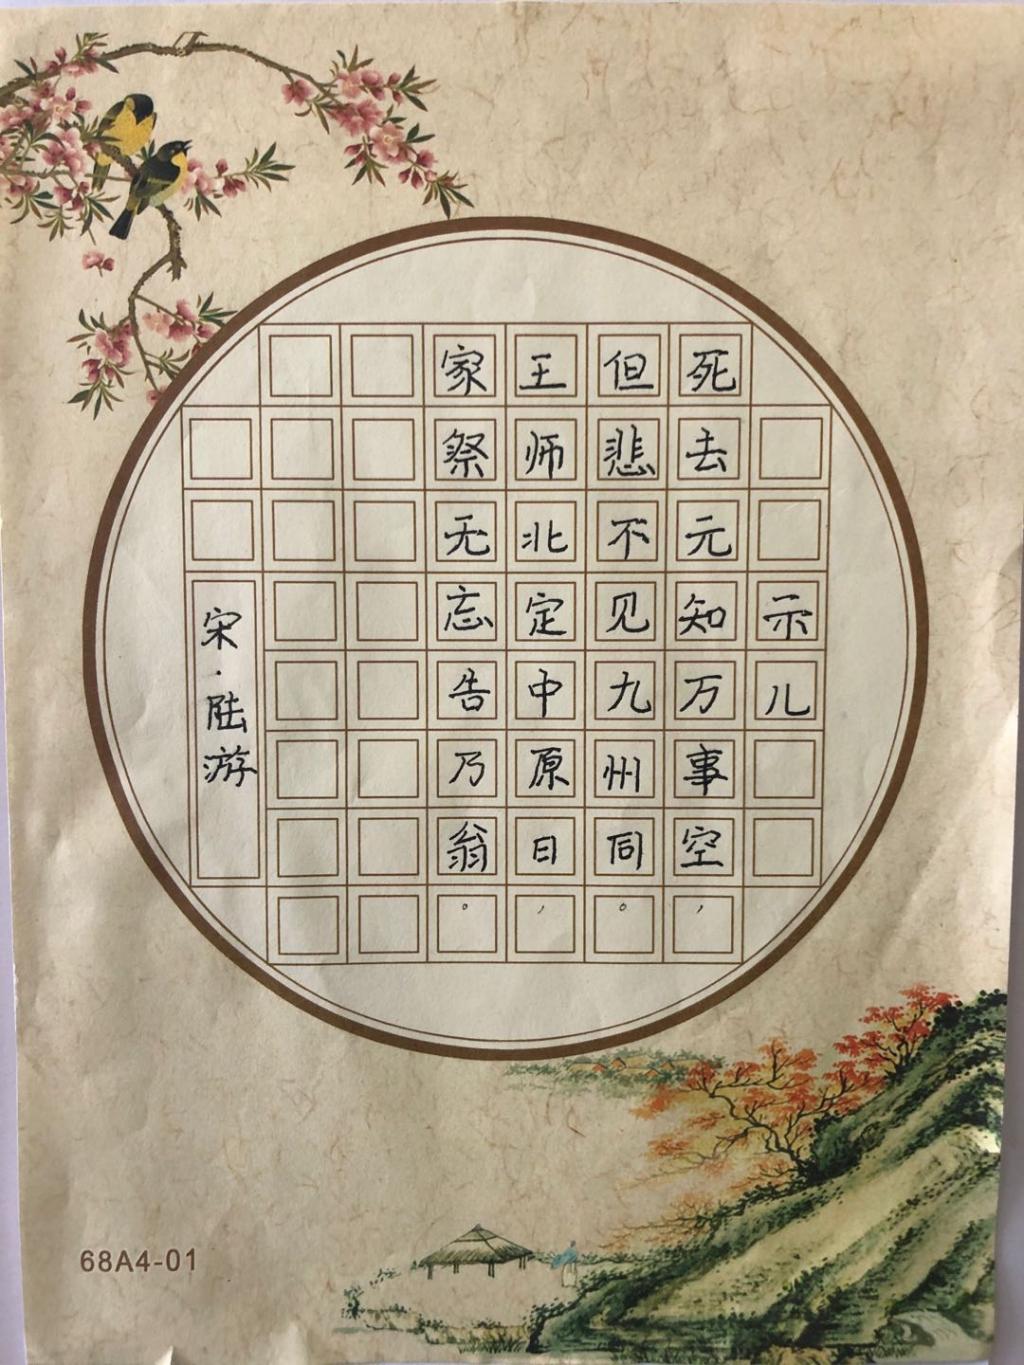 示儿
死去元知万事空，
但悲不见九州同。
王师北定中原日，
家祭无忘告乃翁。
宋·陆游
68A4-01